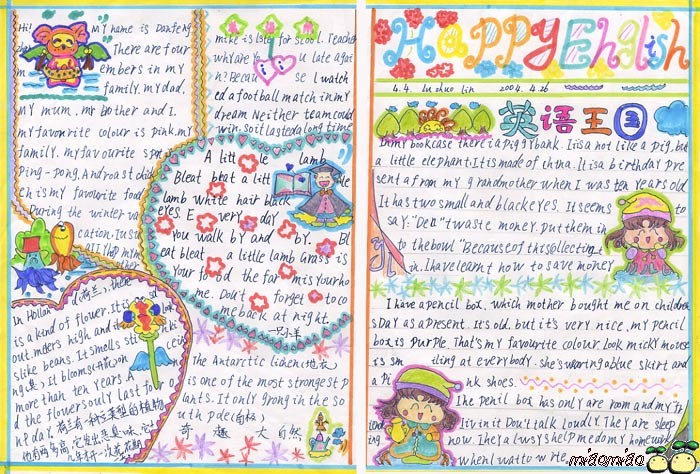 Hi! My name is Danfeng
There are four
embers in my
family. my dad,
my mum, my brother and I.
my favourite colour is pink. my
family. my favourite spot
Ping-pong. And roast chick
en is my favourite food
During the winter va
cation. I us
all
In Hollan (荷兰), there
is a kind of flower. It is
out. meters high and
slike beans. It smells sti
It blooms (开花) on
more than ten years. A
d the flowers ouly last fo
ne day.
mike is later for scool. Teache
why are you late again
n? Because I watch
ed a football match in my
dream Neither team could
win. so it lasted a long time
A little lamb
Bleat beat a litt le
lamb white hair black
eyes. Every day
you walk by and by. Bl
eat bleat a little lamb Grass is
your food the farm is your ho
me. Don't forget to co
me back at night.
一只小羊
the Antarctic lichen (地衣)
is one of the most strongest p
ants. It only grong in the so
uth pole (南极)
奇趣大自然
Happy English
4.4. Lu shuo lin 2004.4.26
英语王国
In my bookcase there is a piggy bank. It is a not like a pig, but
a little elephant. It is made of china. It is a birthday pre
sent a from my grandmother when I was ten years old
It has two small and black eyes. It seems to
say: "Don't waste money put them in
to the bowl" Because of this collecting
in. I have learnt how to save money
I have a pencil box. which mother bought me on children
s Day as a present. It's old. but it's very nice. my pencil
box is Purple. That's my favourite colour. Look micky mouse
is smiling at every body. she's wearing a blue skirt and
a Pink shoes.
The pencil box has only are room and my fr
iend is in it Don't talk loudly. They are sleep
ing now. They always help me do my homework
when I wat to write.
miaomiao